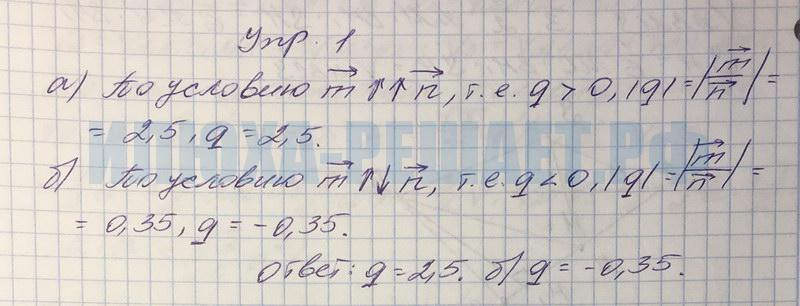 Упр. 1
а) По условию m⃗ ↑↑ n⃗, т.е. q > 0, |q| = |m⃗/n⃗| =
= 2,5, q = 2,5.
б) По условию m⃗ ↑↓ n⃗, т.е. q < 0, |q| = |m⃗/n⃗| =
= 0,35, q = -0,35.
ответ: q = 2,5. б) q = -0,35.